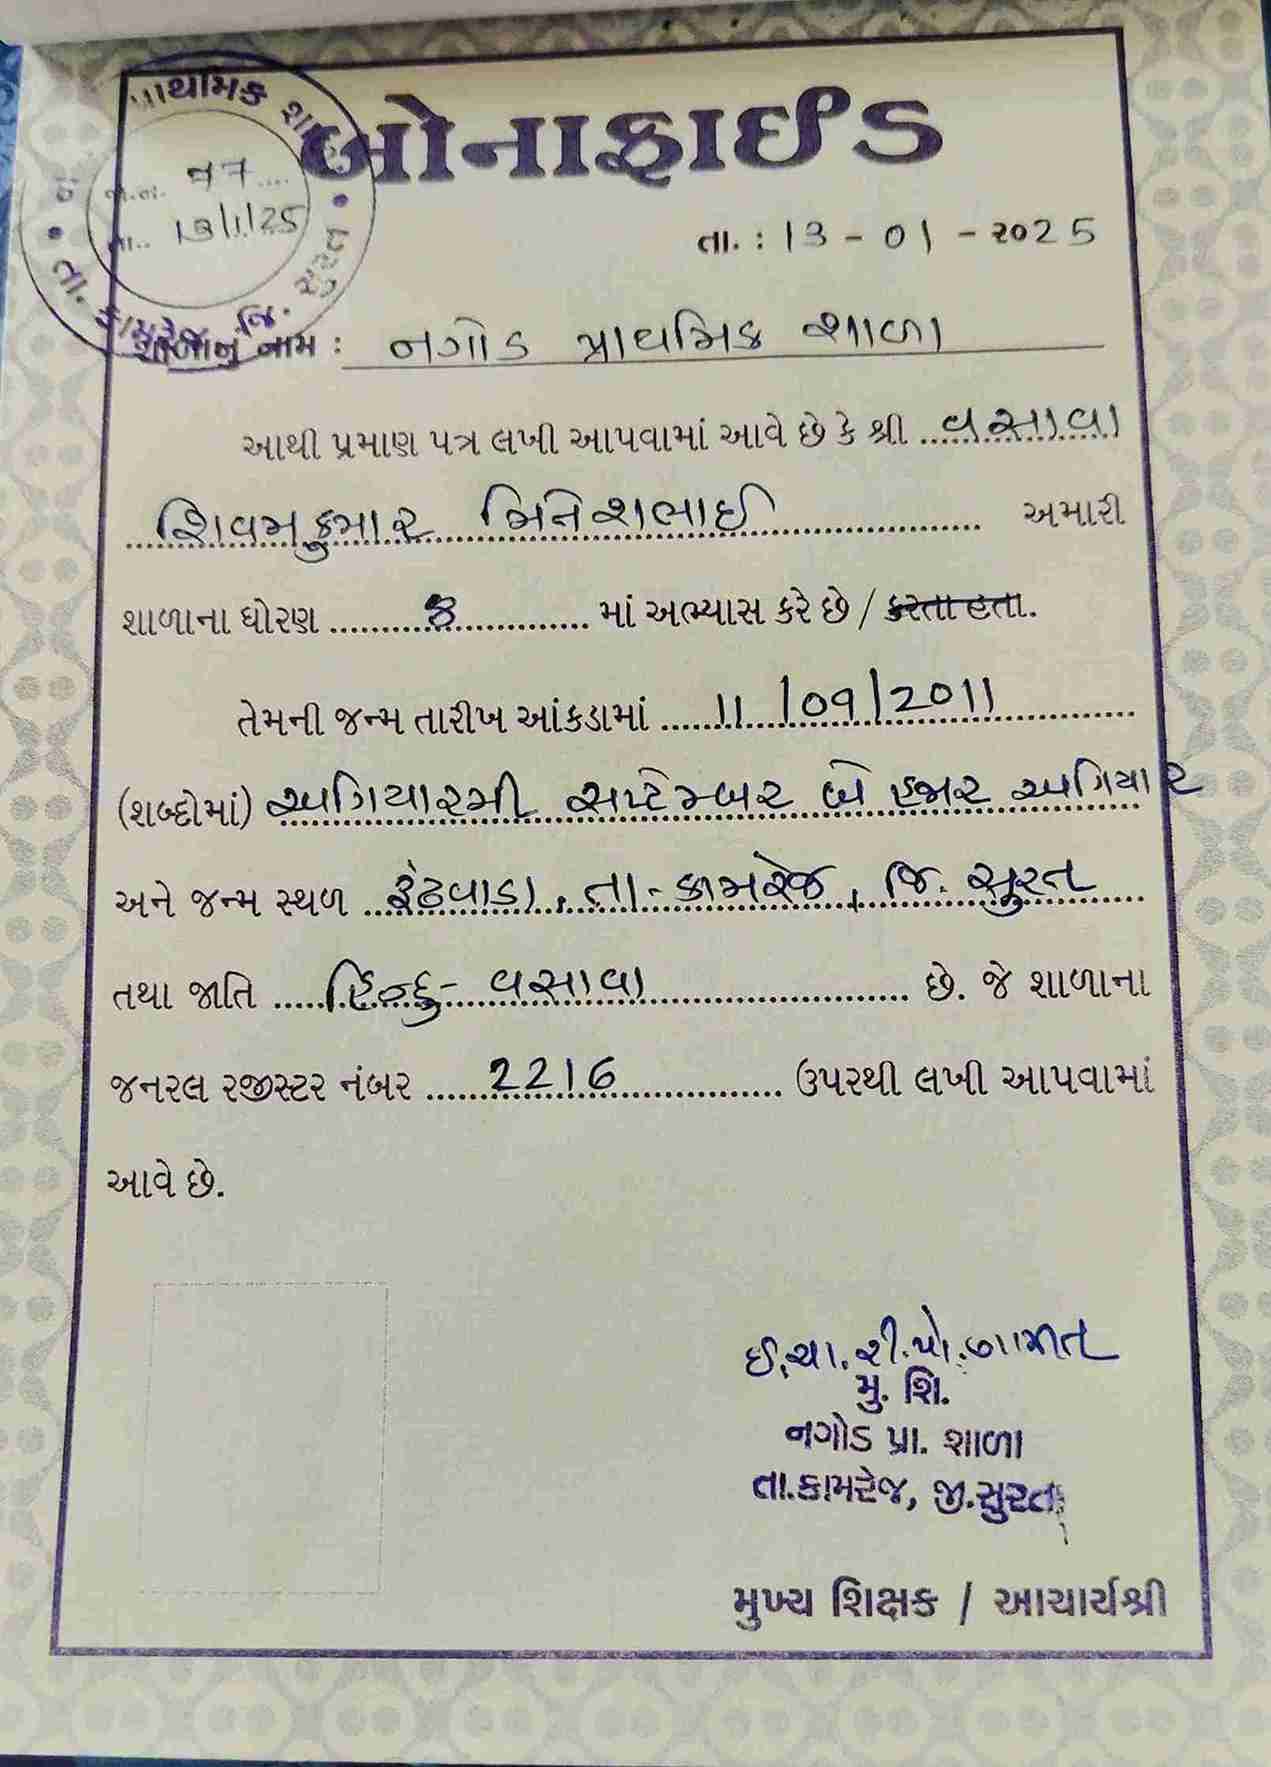 પ્રાથમિક શાળા
તા. કામરેજ જિ. સુરત
જા.નં. ૧૧
તા.. 13/1/25
બોનાફાઈડ
તા. : 13 - 01 - ૨૦25
શાળાનું નામ : નગોડ પ્રાથમિક શાળા
આથી પ્રમાણ પત્ર લખી આપવામાં આવે છે કે શ્રી વસાવા
શિવમકુમાર મિતેશભાઈ અમારી
શાળાના ધોરણ ..... માં અભ્યાસ કરે છે / કરતા હતા.
તેમની જન્મ તારીખ આંકડામાં 11/09/2011
(શબ્દોમાં) અગિયારમી સપ્ટેમ્બર બે હજાર અગિયાર
અને જન્મ સ્થળ રૂંઢવાડા, તા-કામરેજ, જિ. સુરત
તથા જાતિ હિન્દુ - વસાવા છે. જે શાળાના
જનરલ રજીસ્ટર નંબર 2216 ઉપરથી લખી આપવામાં
આવે છે.
ઈ.ચા.
મુ. શિ.
નગોડ પ્રા. શાળા
તા.કામરેજ, જી.સુરત
મુખ્ય શિક્ષક / આચાર્યશ્રી